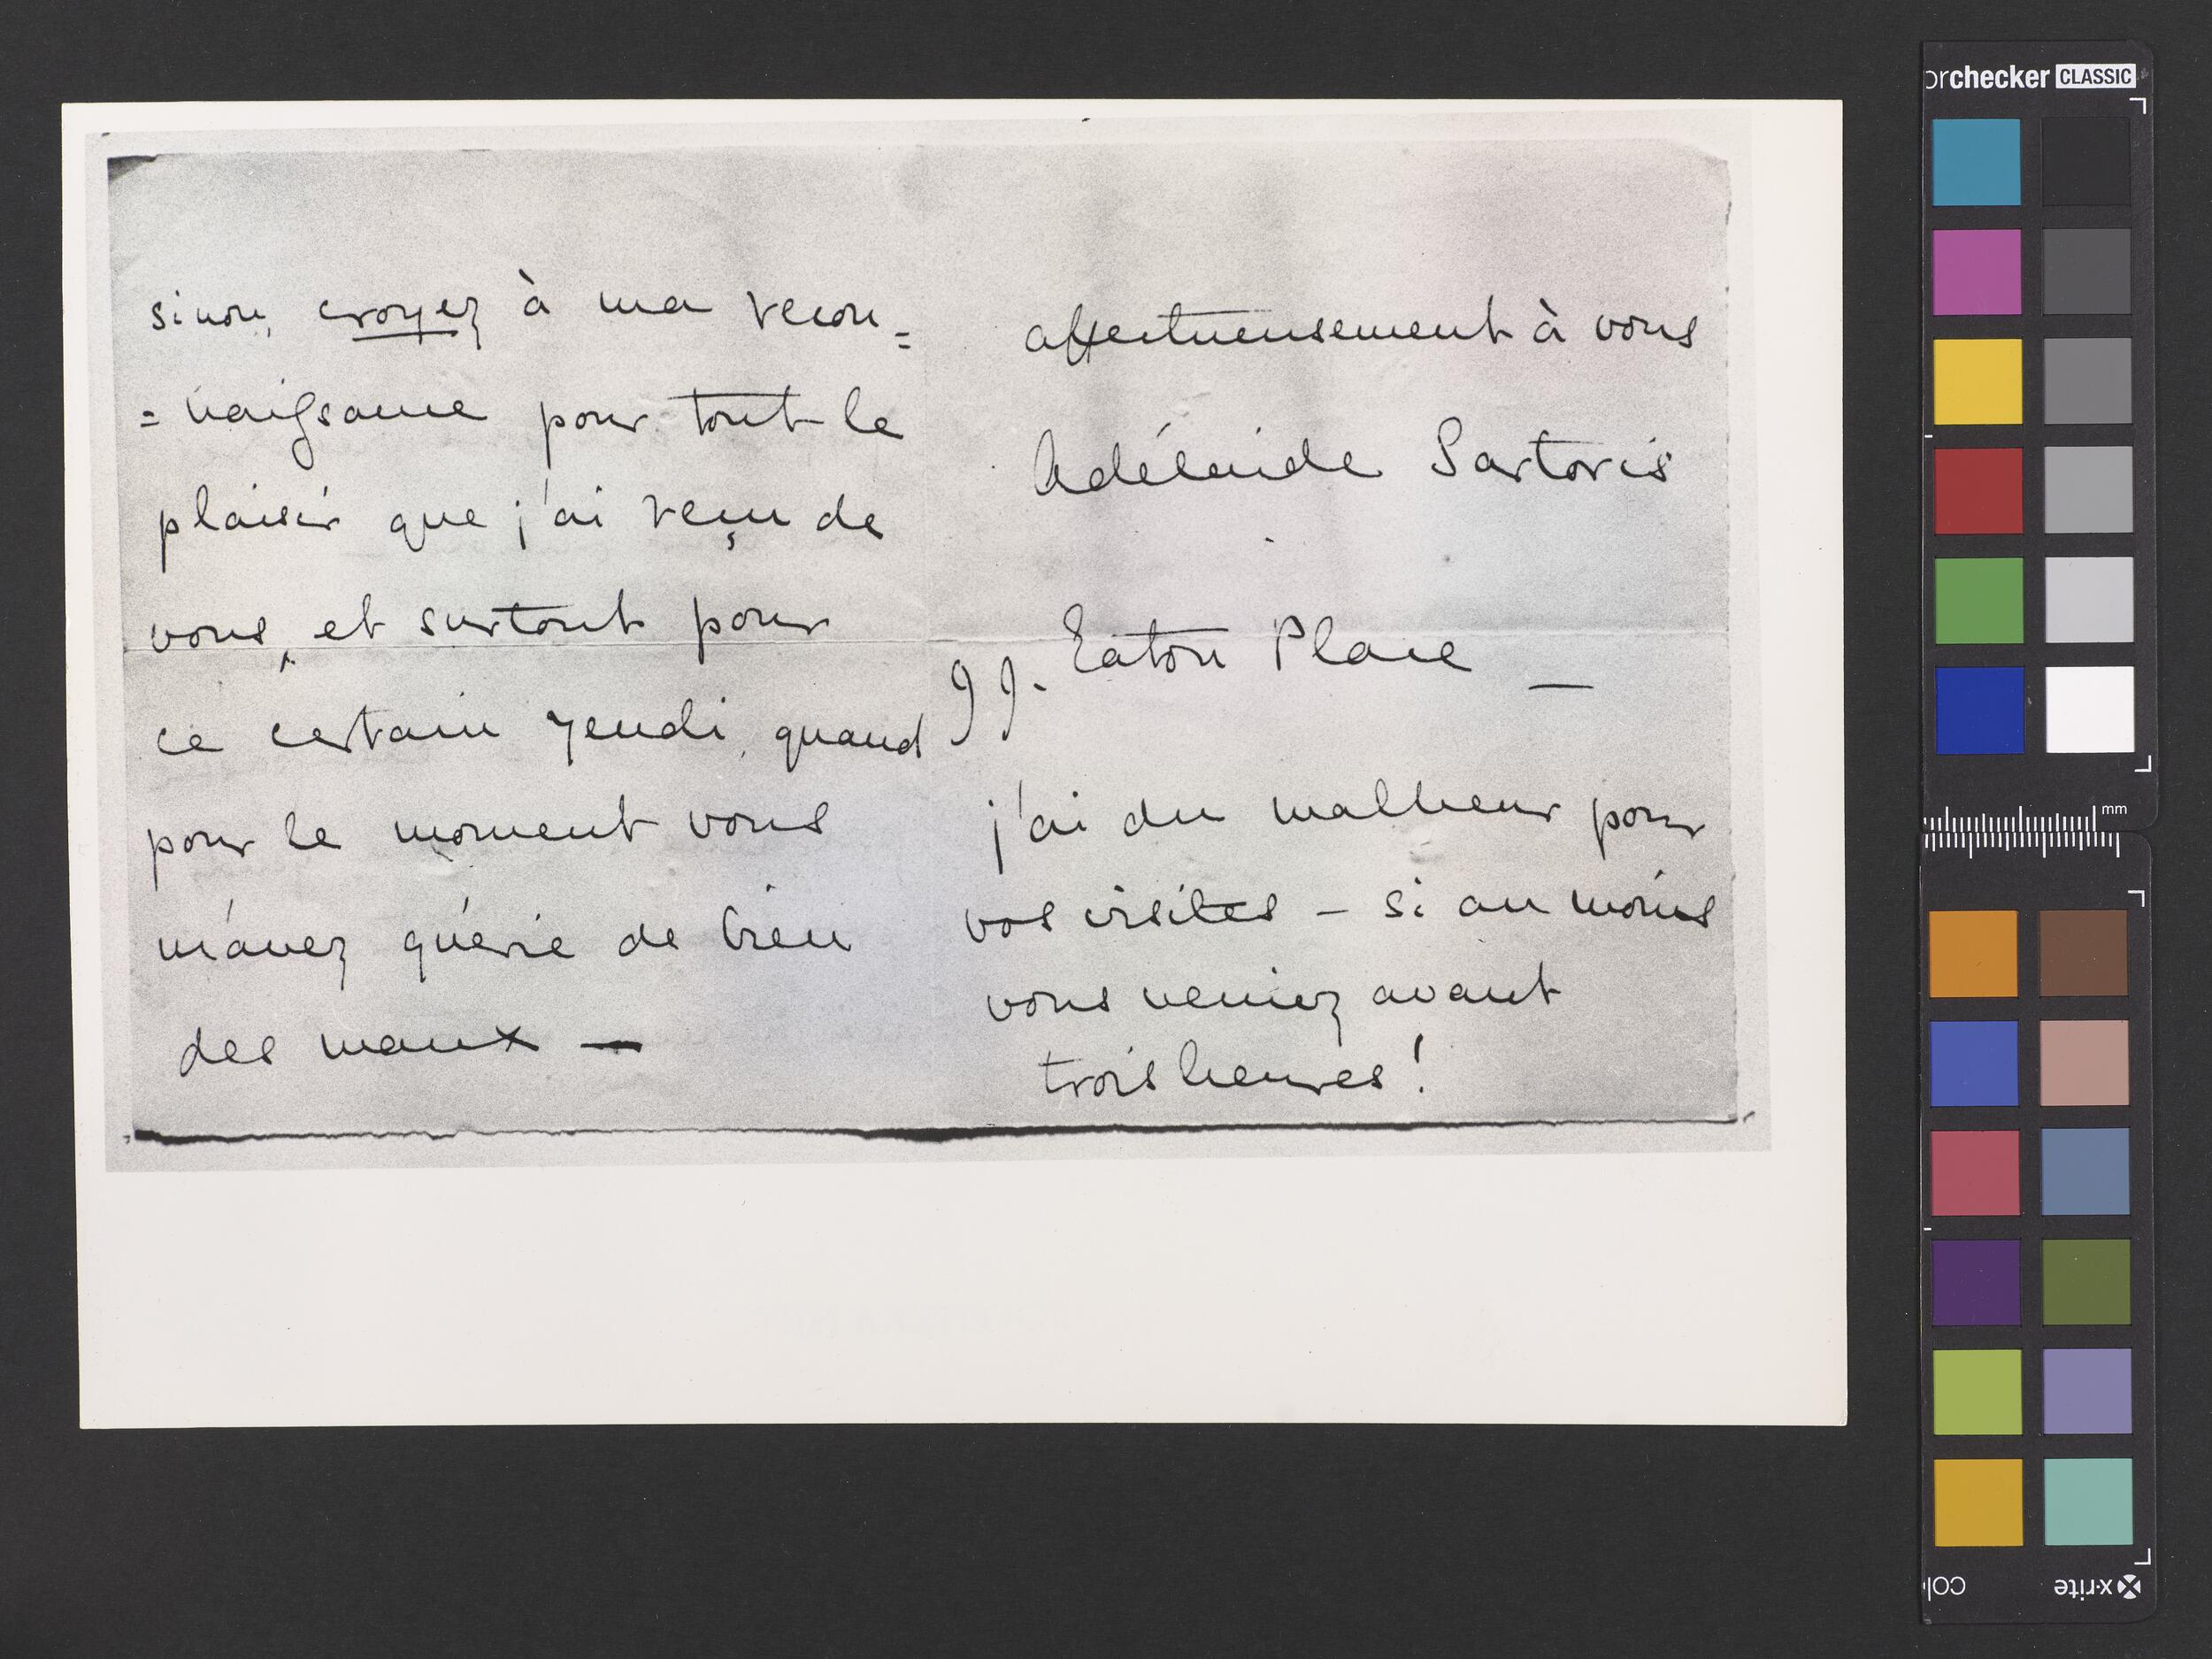 sinon, croyez à ma recon=
=naissance pour tout le
plaisir que j'ai reçu de
vous, et surtout pour
ce certain jeudi, quand
pour le moment vous
m'avez guérie de bien
des maux —
affectueusement à vous
Adélaide Sartoris
99. Eaton Place —
j'ai du malheur pour
vos visites – si au moins
vous veniez avant
trois heures!
orchecker CLASSIC
mm
x-rite
col